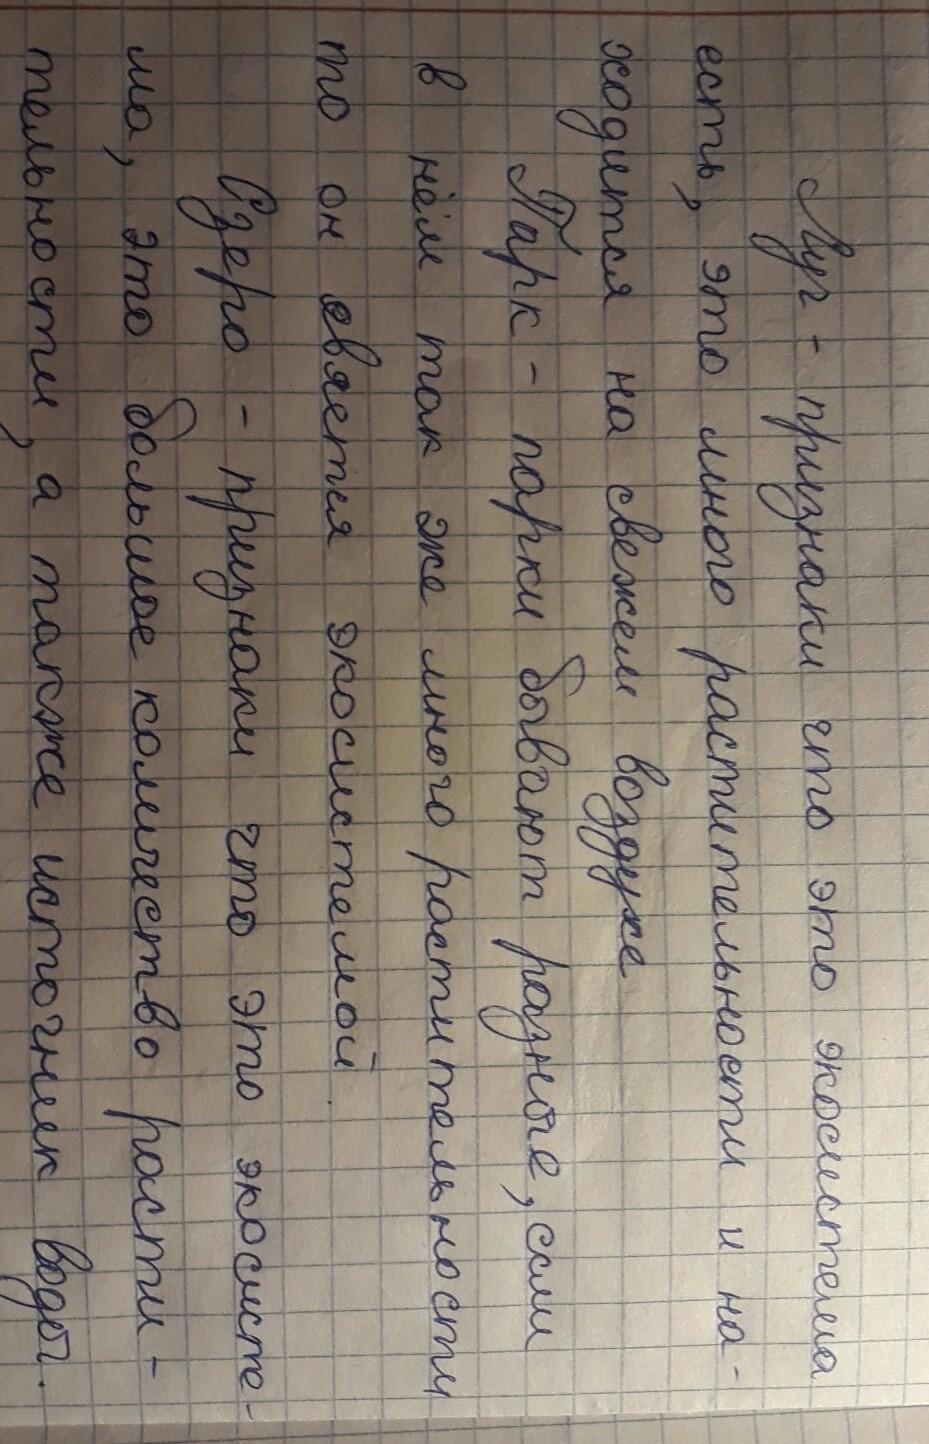 Луг - признаки что это экосистема
есть, это много растительности и на-
ходится на свежем воздухе
Парк - парки бывают разные, если
в нём так же много растительности
то он евяется экосистемой.
Озеро - признаки что это экосисте-
ма, это большое количество расти-
тельности, а также источник воды.